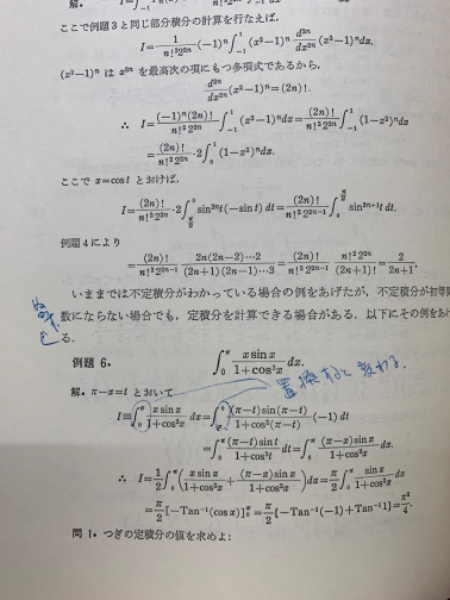 解.
ここで例題3と同じ部分積分の計算を行なえば,
I=1/(n!²2²ⁿ) (-1)ⁿ∫₋₁¹ (x²-1)ⁿ d²ⁿ/dx²ⁿ (x²-1)ⁿdx.
(x²-1)ⁿ は x²ⁿ を最高次の項にもつ多項式であるから,
d²ⁿ/dx²ⁿ (x²-1)ⁿ=(2n)!.
∴ I=(-1)ⁿ(2n)!/(n!²2²ⁿ) ∫₋₁¹ (x²-1)ⁿdx=(2n)!/(n!²2²ⁿ) ∫₋₁¹ (1-x²)ⁿdx
=(2n)!/(n!²2²ⁿ)·2∫₀¹ (1-x²)ⁿdx.
ここで x=cos t とおけば,
I=(2n)!/(n!²2²ⁿ)·2∫_{π/2}^0 sin²ⁿt(-sin t) dt=(2n)!/(n!²2²ⁿ⁻¹)∫_0^{π/2} sin²ⁿ⁺¹t dt.
例題4により
=(2n)!/(n!²2²ⁿ⁻¹) 2n(2n-2)…2/((2n+1)(2n-1)…3)=(2n)!/(n!²2²ⁿ⁻¹) n!²2²ⁿ/(2n+1)!=2/(2n+1).
いままでは不定積分がわかっている場合の例をあげたが, 不定積分が初等関
数にならない場合でも, 定積分を計算できる場合がある. 以下にその例をあげ
る.
例題 6. ∫_0^π x sin x/(1+cos²x) dx.
置換すると変わる.
解. π-x=t とおいて
I≡∫_0^π x sin x/(1+cos²x) dx=∫_π^0 (π-t)sin(π-t)/(1+cos²(π-t)) (-1) dt
=∫_0^π (π-t)sin t/(1+cos²t) dt=∫_0^π (π-x)sin x/(1+cos²x) dx.
∴ I=1/2∫_0^π (x sin x/(1+cos²x) + (π-x)sin x/(1+cos²x))dx=π/2∫_0^π sin x/(1+cos²x) dx
=π/2[-Tan⁻¹(cos x)]_0^π=π/2{-Tan⁻¹(-1)+Tan⁻¹1}=π²/4.
問 1. つぎの定積分の値を求めよ: